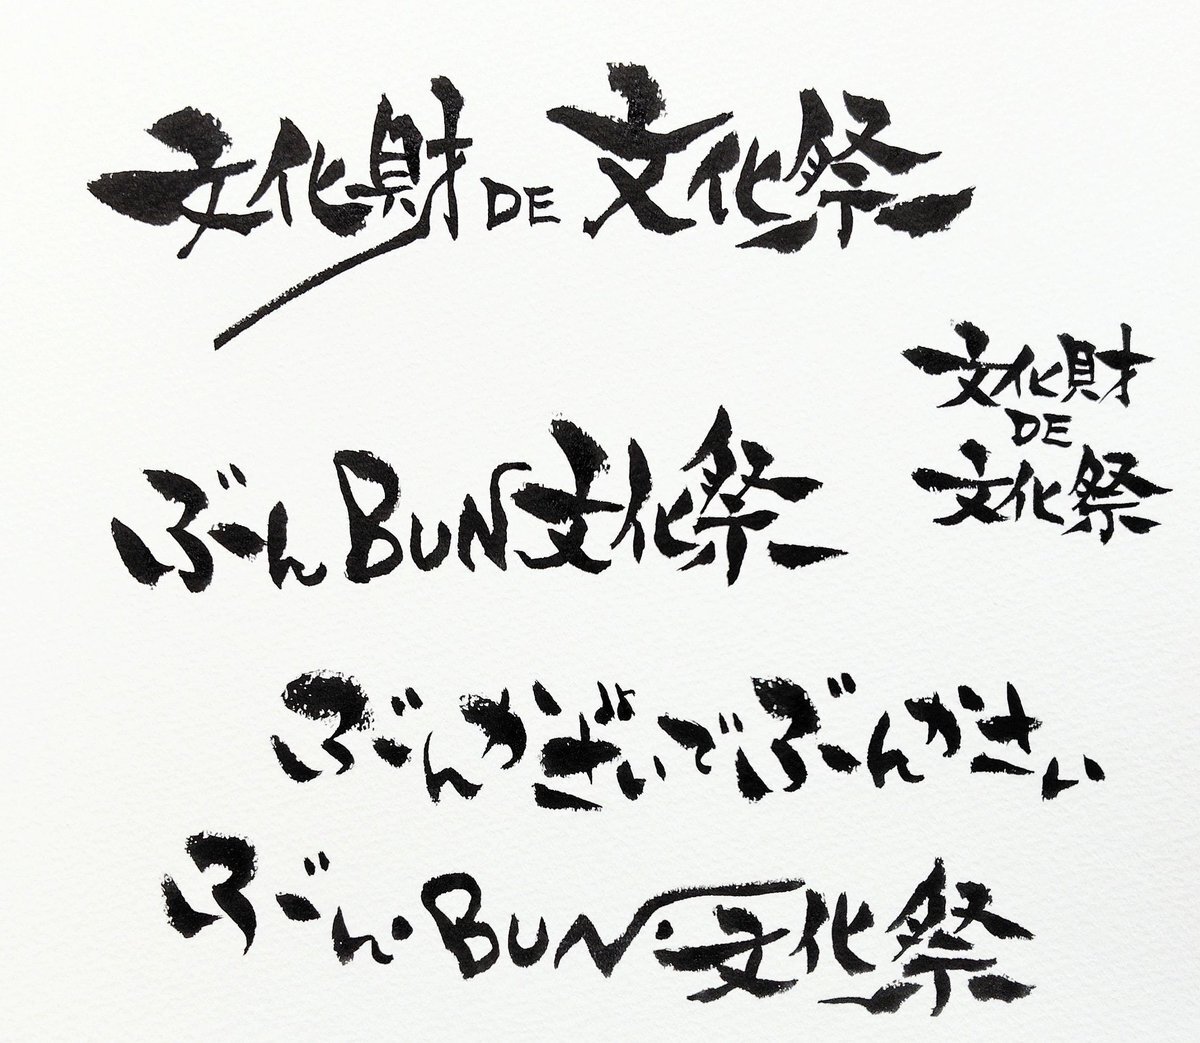 文化財DE文化祭
文化財
DE
文化祭
ぶんBUN文化祭
ぶんかざいでぶんかさい
ぶん・BUN・文化祭